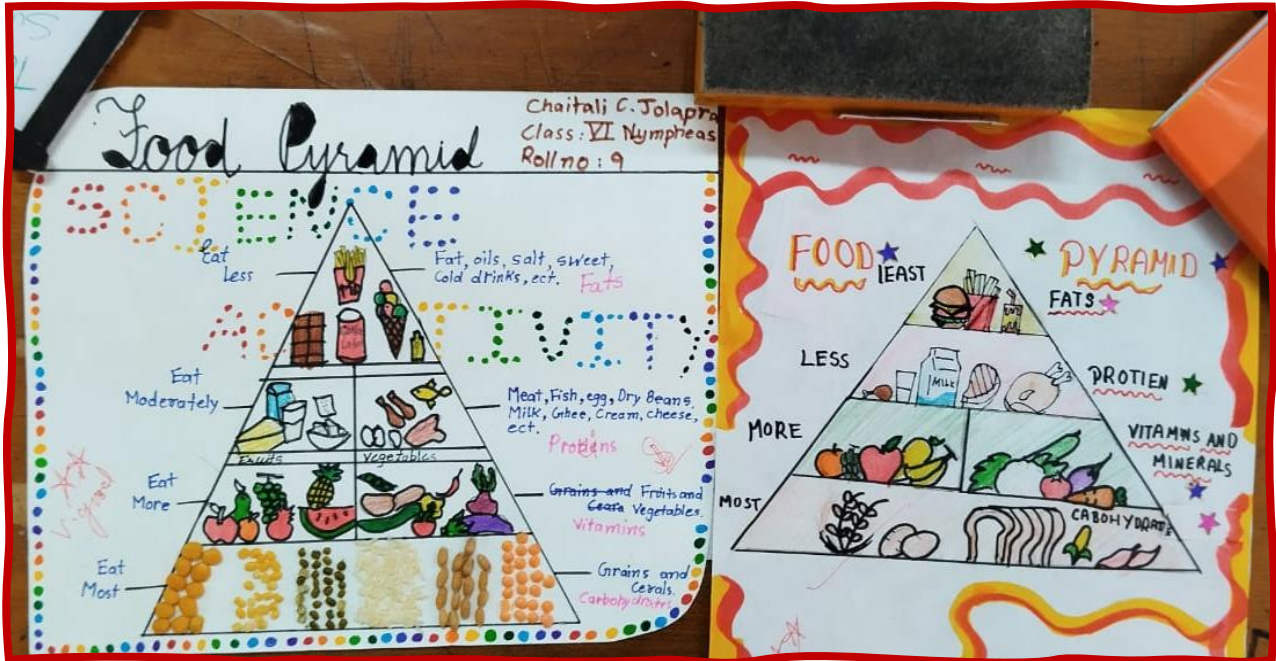 Food Pyramid
Chaitali C. Jolapra
Class: VI Nympheas
Roll no: 9
SCIENCE
ACTIVITY
Eat
Less
Fat, oils, salt, sweet,
Cold drinks, ect.
Fats
Eat
Moderately
Meat, Fish, egg, Dry Beans,
Milk, Ghee, Cream, cheese,
ect.
Protiens
Fruits
Vegetables
Eat
More
Grains and Fruits and
Vegetables.
Vitamins
Eat
Most
Grains and
Cerals.
Carbohydrates
V. good
FOOD
PYRAMID
LEAST
FATS
LESS
MILK
PROTIEN
MORE
VITAMINS AND
MINERALS
MOST
CABOHYDRATE